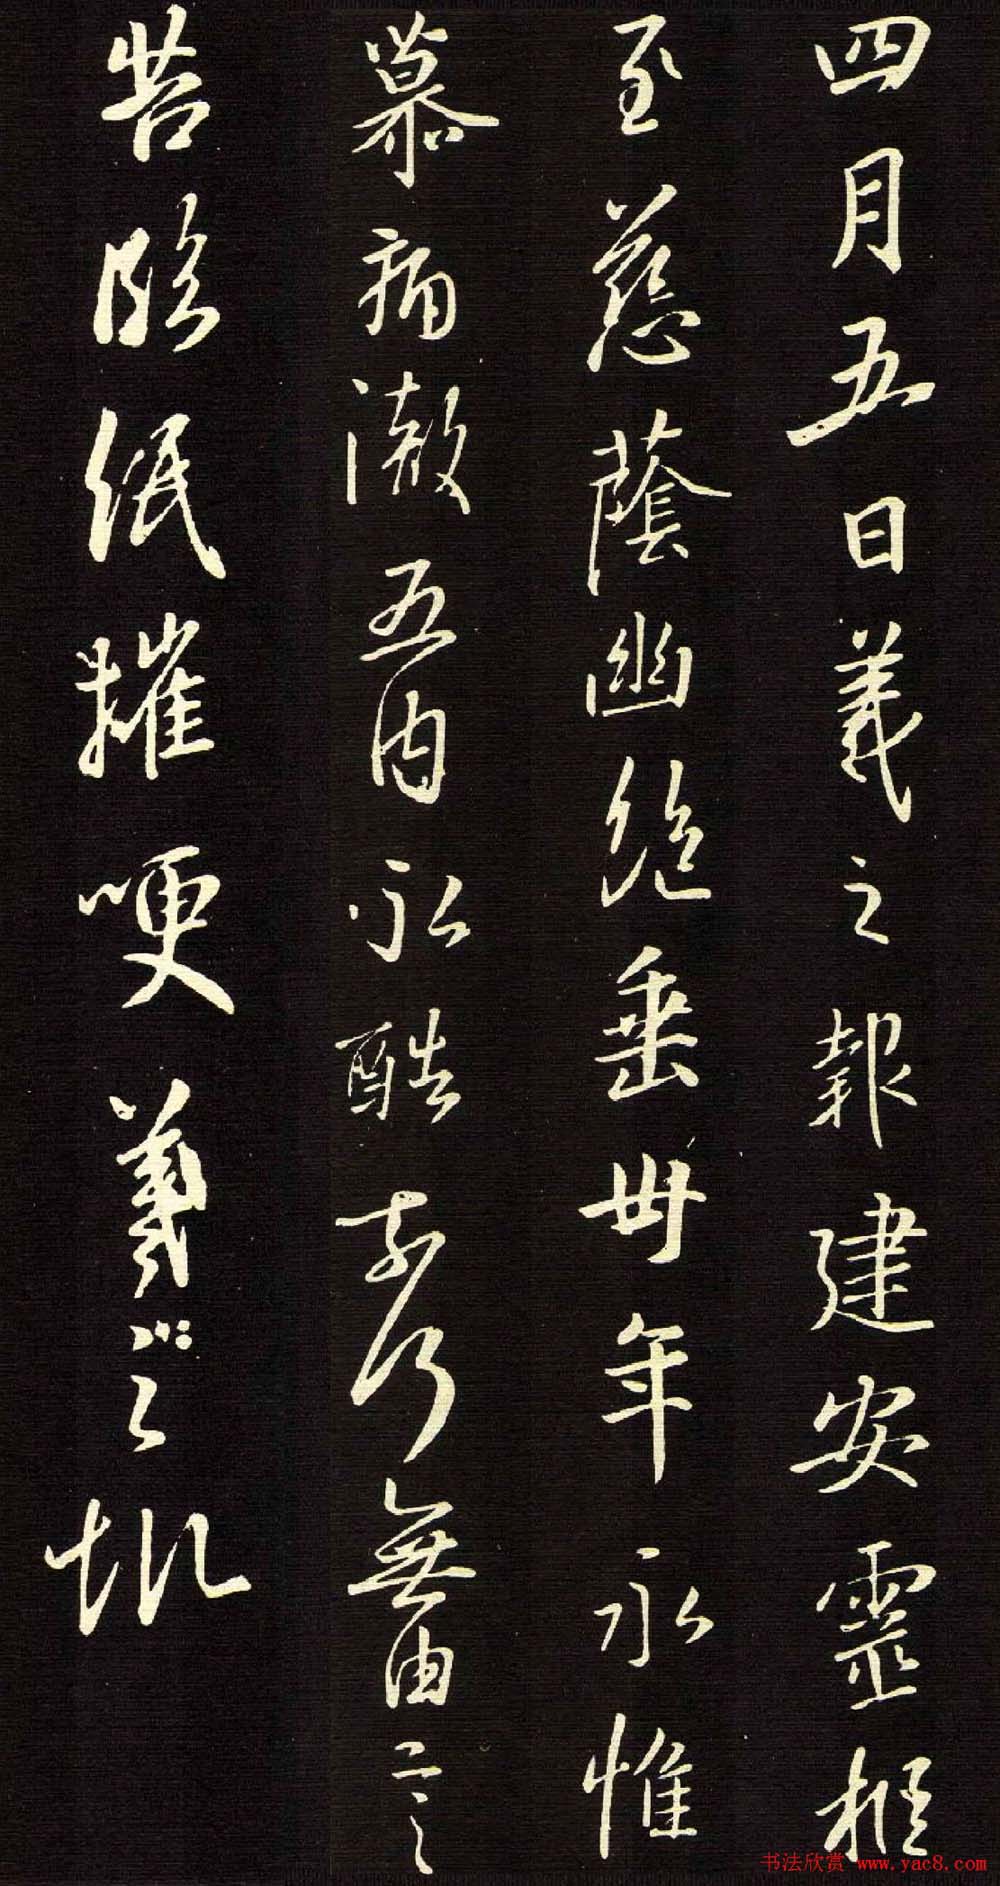 四月五日羲之報建安靈柩
至慈蔭幽絕垂卅年永惟
慕痛澈五內永酷奈何無由言
苦臨紙摧哽羲之
书法欣赏 www.yac8.com